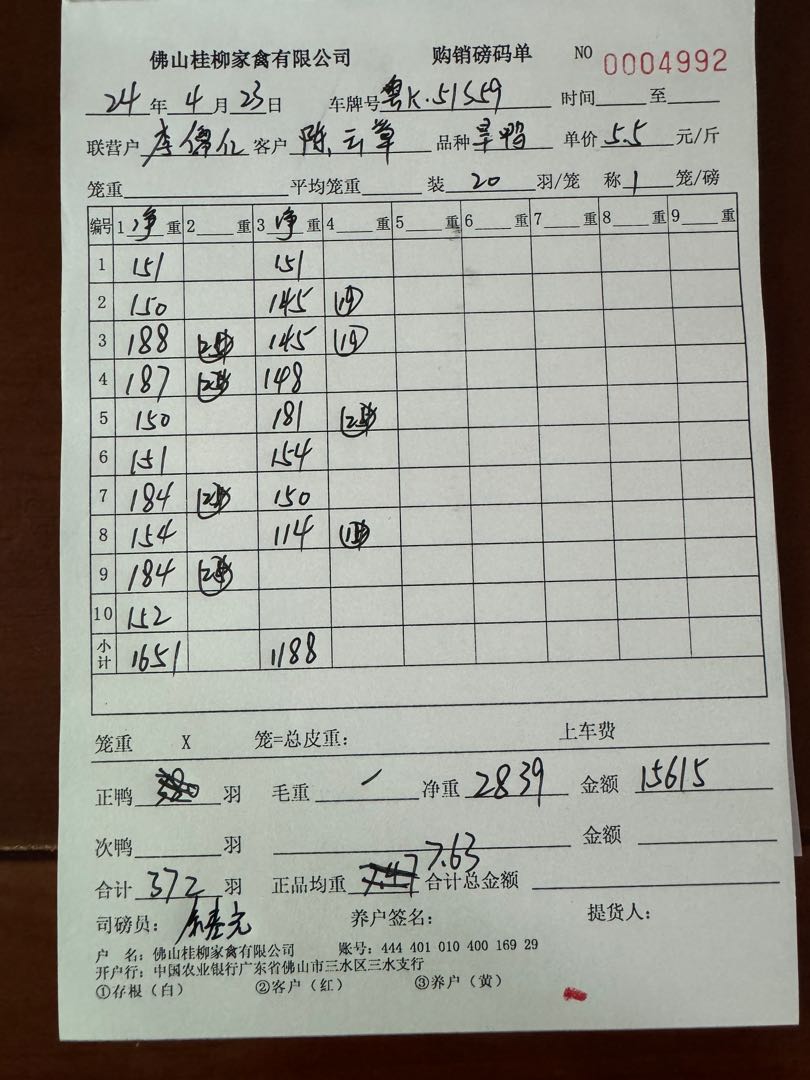 佛山桂柳家禽有限公司 购销磅码单 NO 0004992
24年4月23日 车牌号粤K.51559 时间 至
联营户 李 客户 陈云 品种 旱鸭 单价5.5元/斤
笼重 平均笼重 装 20 羽/笼 称 1 笼/磅
编号 1净重 2 重 3净重 4 重 5 重 6 重 7 重 8 重 9 重
1 151 151
2 150 145 19
3 188 145 19
4 187 148
5 150 181
6 151 154
7 184 150
8 154 114
9 184
10 152
小计 1651 1188
笼重 X 笼=总皮重: 上车费
正鸭 羽 毛重 / 净重 2839 金额 15615
次鸭 羽 金额
7.63
合计 372 羽 正品均重 7.47 合计总金额
司磅员: 养户签名: 提货人:
户 名: 佛山桂柳家禽有限公司 账号: 444 401 010 400 169 29
开户行: 中国农业银行广东省佛山市三水区三水支行
①存根(白) ②客户(红) ③养户(黄)